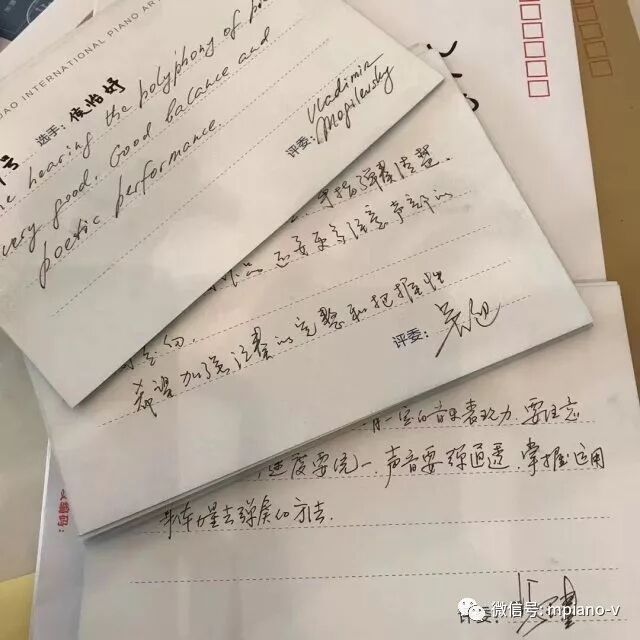 DAO INTERNATIONAL PIANO ART
号 选手: 侯怡妤
he hearing the polyphony of
very good. Good balance and
poetic performance.
评委: Vladimir
Mogilevsky
手指弹奏清楚.
还要更多注意声部的
希望加强演奏的完整和把握性
评委:
一定的音乐表现力 要注意
速度要统一. 声音要弹通透 掌握运用
身体力量去弹奏的方法.
评委:
微信号: mpiano-v